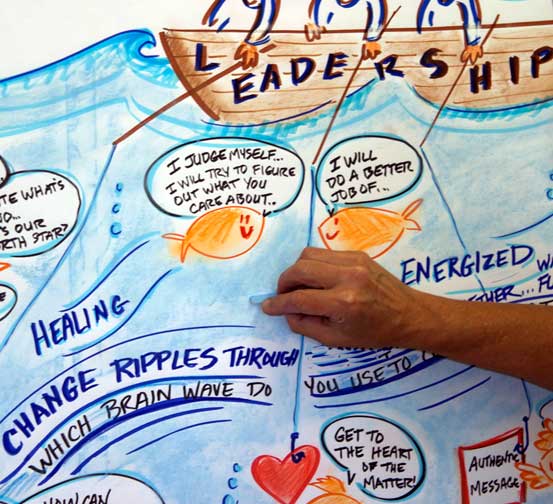 LEADERSHIP
I JUDGE MYSELF...
I WILL TRY TO FIGURE
OUT WHAT YOU
CARE ABOUT..
I WILL
DO A BETTER
JOB OF...
WHAT'S
OUR
STAR?
ENERGIZED
HEALING
CHANGE RIPPLES THROUGH
WHICH BRAIN WAVE DO
YOU USE TO
GET TO
THE HEART
OF THE
MATTER!
AUTHENTIC
MESSAGE
HOW CAN